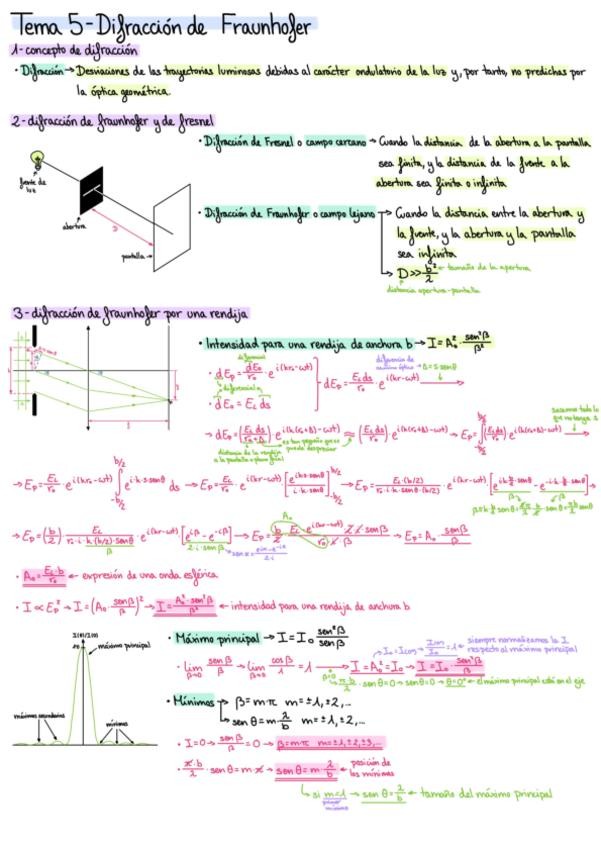 Tema 5 - Difracción de Fraunhofer
1- concepto de difracción
· Difracción → Desviaciones de las trayectorias luminosas debidas al carácter ondulatorio de la luz y, por tanto, no predichas por
la óptica geométrica.
2 - difracción de fraunhofer y de fresnel
· Difracción de Fresnel o campo cercano → Cuando la distancia de la abertura a la pantalla
sea finita, y la distancia de la fuente a la
abertura sea finita o infinita
fuente de
luz
abertura
D
pantalla
· Difracción de Fraunhofer o campo lejano → Cuando la distancia entre la abertura y
la fuente, y la abertura y la pantalla
sea infinita
→ D >> b²/λ ← tamaño de la apertura
distancia apertura-pantalla
3 - difracción de fraunhofer por una rendija
· Intensidad por una rendija de anchura b → I = A₀² · sen²β/β²
diferencial
· dEp = dE₀/r₀ · e^i(kr-ωt)
diferencial
· dE₀ = E_L ds
dEp = E_L ds/r₀ · e^i(kr-ωt)
diferencia de
camino óptico → Δ = s·senθ
→ dEp = (E_L ds/(r₀+Δ)) · e^i(k(r₀+Δ)-ωt) ≈ (E_L ds/r₀) · e^i(k(r₀+Δ)-ωt) → Ep = ∫ (E_L ds/r₀) e^i(k(r₀+Δ)-ωt)
es tan pequeño que se
puede despreciar
distancia de la rendija
a la pantalla
sacamos todo lo
que no tenga s
→ Ep = E_L/r₀ · e^i(kr₀-ωt) ∫ e^i·k·s·senθ ds → Ep = E_L/r₀ · e^i(kr-ωt) [e^ik·s·senθ / i·k·senθ] → Ep = E_L·(b/2)/r₀·i·k·senθ·(b/2) · e^i(kr-ωt) [e^ik·b/2·senθ - e^-i·k·b/2·senθ]
→ Ep = (b/2) · E_L/r₀·i·k·(b/2)·senθ · e^i(kr-ωt) [e^iβ - e^-iβ] → Ep = b/2 · E_L · e^i(kr-ωt)/r₀ · 2·i·senβ/β → Ep = A₀ · senβ/β
· A₀ = E_L·b/r₀ ← expresión de una onda esférica
· I ∝ Ep² → I = (A₀ · senβ/β)² → I = A₀²·sen²β/β² ← intensidad para una rendija de anchura b
máximo principal
máximos secundarios
mínimos
· Máximo principal → I = I₀ sen²β/β²
siempre normalizamos la I
respecto al máximo principal
· lim β→0 senβ/β → lim β→0 cosβ/1 = 1 → I = A₀² = I₀ → I = I₀ · sen²β/β²
β=0 → π·b/λ · senθ = 0 → senθ = 0 → θ = 0° ← el máximo principal está en el eje
· Mínimos → β = mπ m = ±1, ±2, ...
→ senθ = m λ/b m = ±1, ±2, ...
· I = 0 → senβ/β = 0 → β = mπ m = ±1, ±2, ±3, ...
· π·b/λ · senθ = m·π → senθ = m · λ/b ← posición de
los mínimos
→ si m = 1 → senθ = λ/b ← tamaño del máximo principal
primer
mínimo